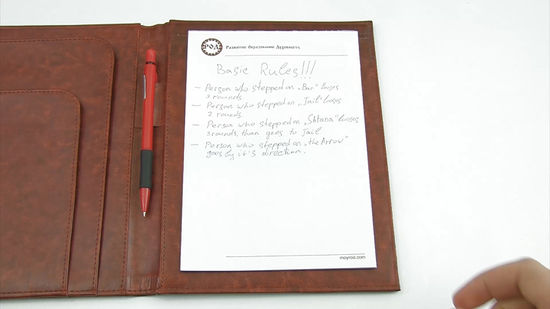 РОД Развитие Образование Духовность
Basic Rules!!!
- Person who stepped on „Bar" looses
3 rounds
- Person who stepped on „Jail" looses
2 rounds
- Person who stepped on „Shtana" looses
3 rounds, than goes to Jail
- Person who stepped on „the Arrow"
goes by it's direction.
moyrod.com